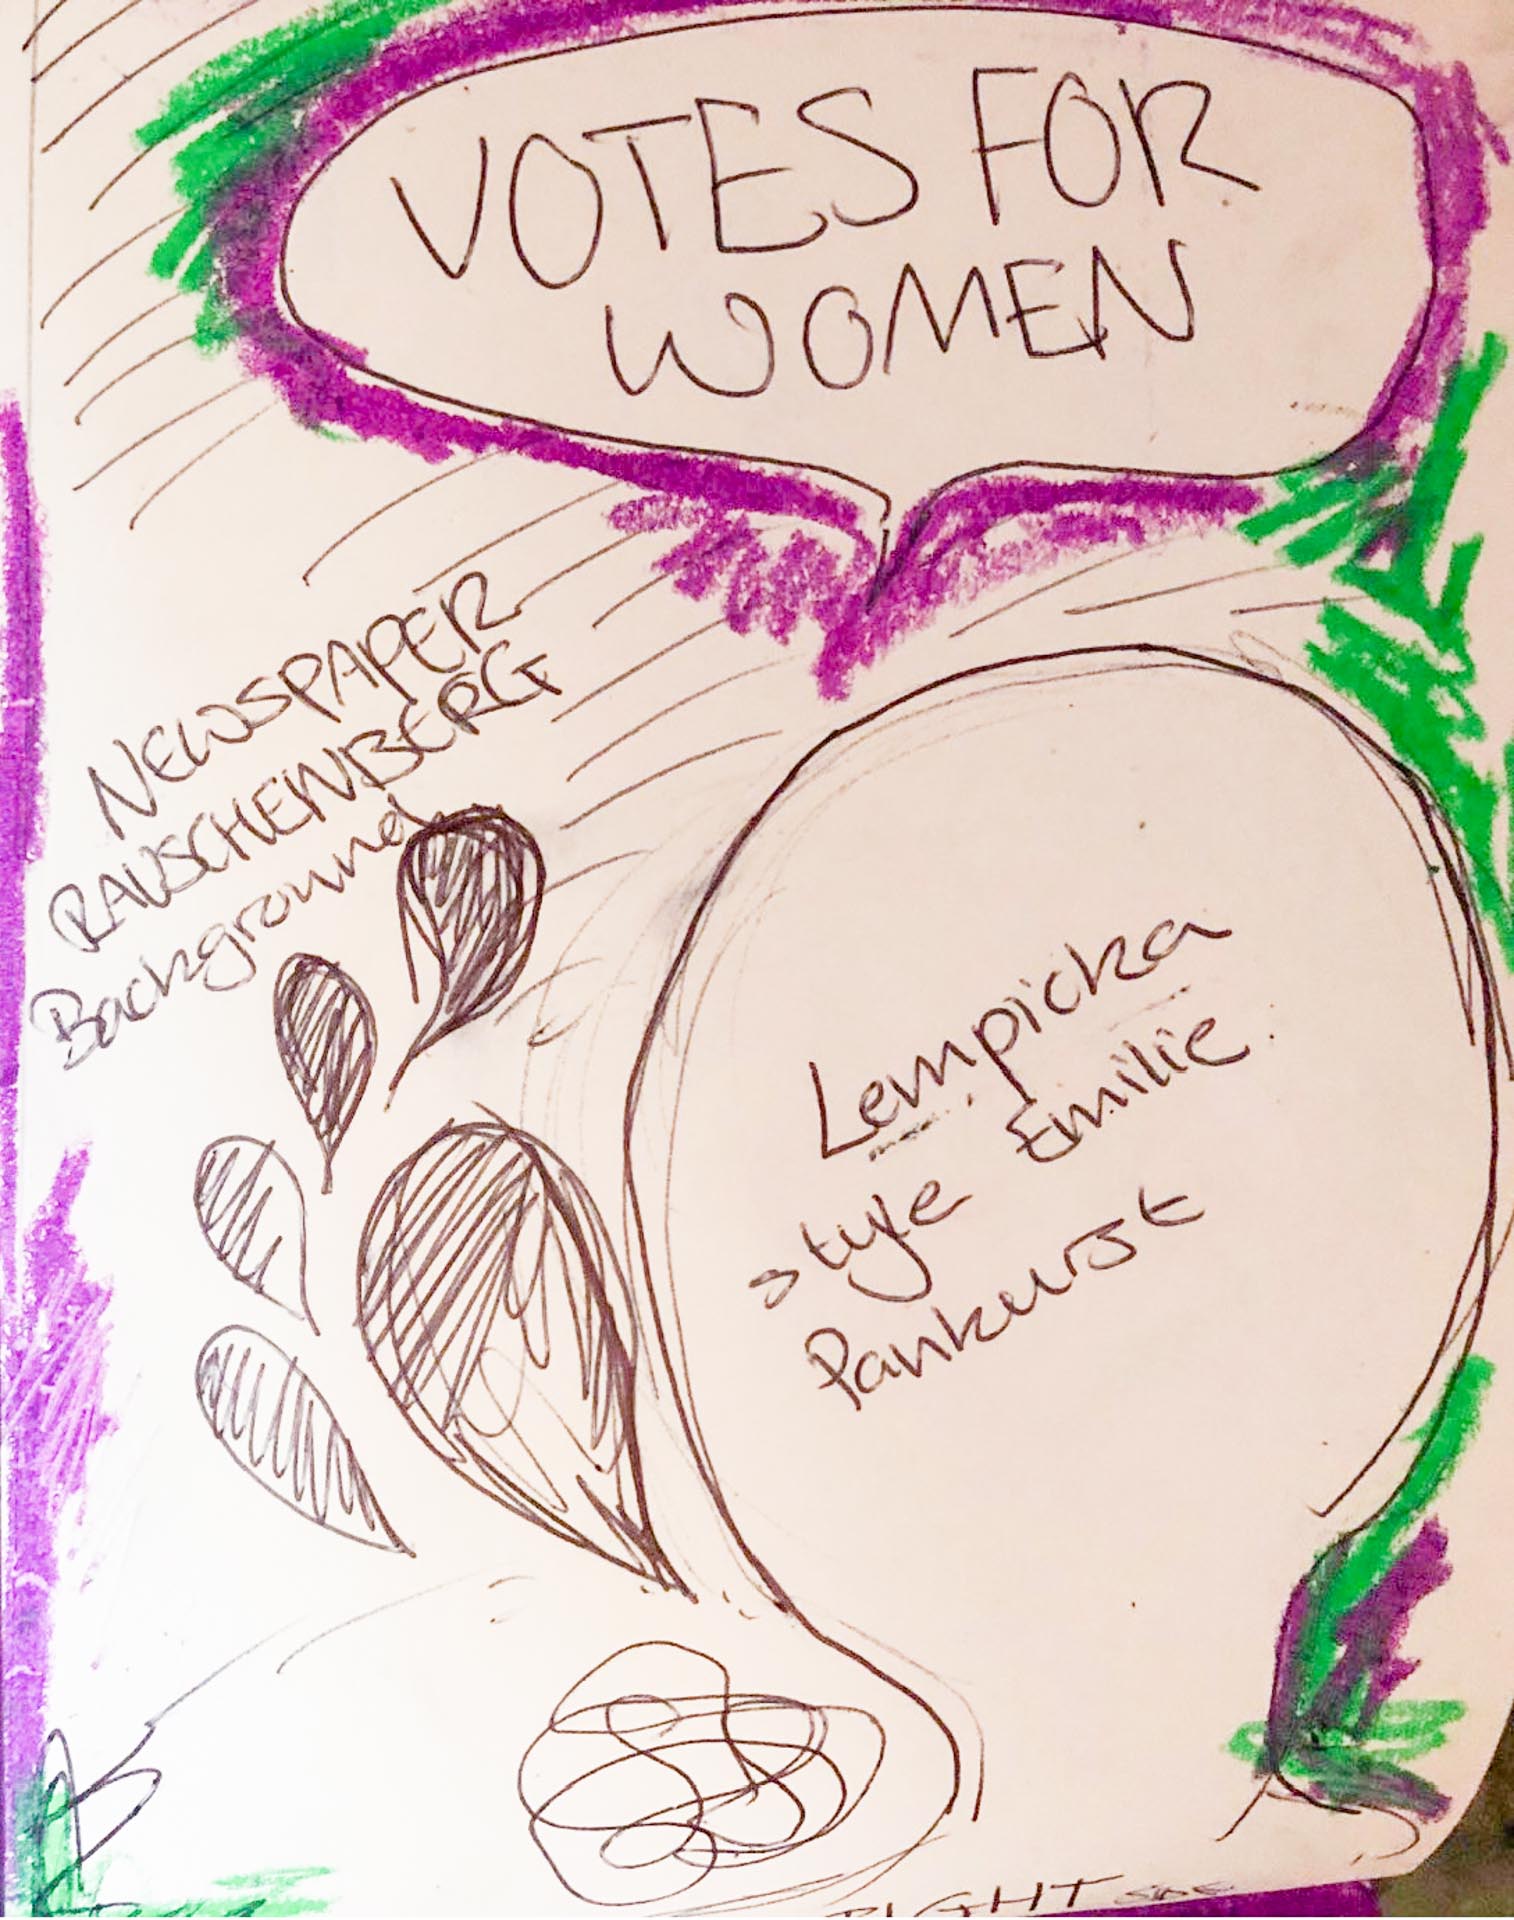 VOTES FOR
WOMEN
NEWSPAPER
RAUSCHENBERG
Background
Lempicka
style Emilie
Pankurst
RIGHT